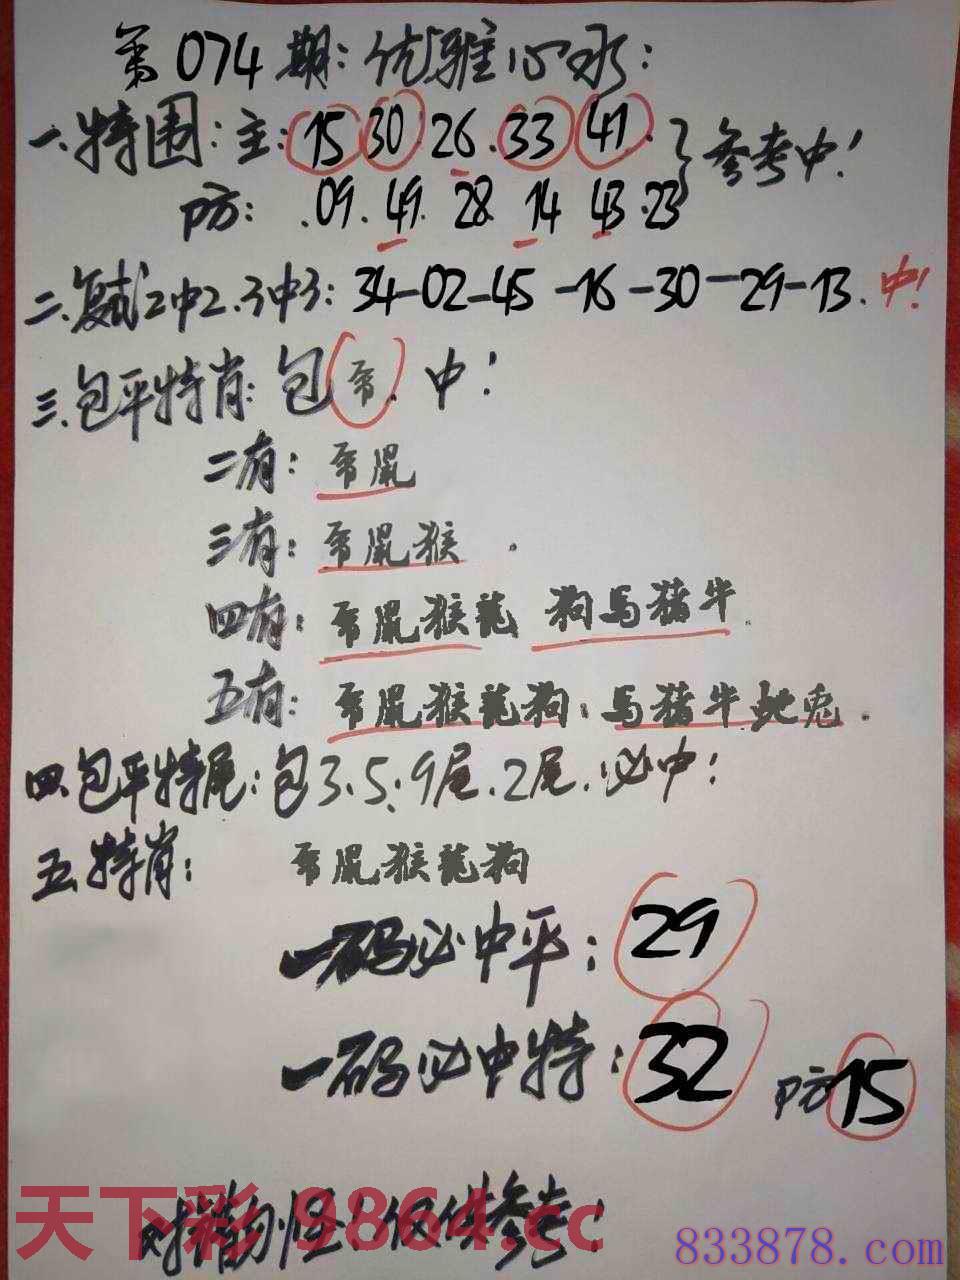 第074期:优雅心水:
一.特围:主:15 30 26.33 41.}参考中!
防:.09.49.28 14 43.23
二.复式2中2.3中3:34-02-45-16-30-29-13.中!
三.包平特肖:包 .中!
二有: 鼠
三有: 鼠猴.
四有: 鼠猴龍 狗马猪牛.
五有: 鼠猴龍狗.马猪牛蛇兔.
四.包平特尾:包3.5.9尾.2尾.必中!
五.特肖: 鼠猴龍狗
一码必中平:29
一码必中特:32 防15
天下彩 9864.cc
仅供参考!
833878.com